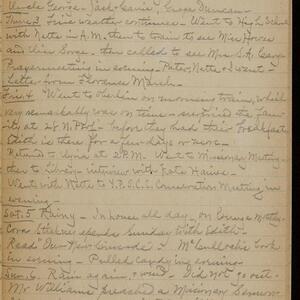 Uncle George. Jack Gavin & Grace Duncan.
Thurs. 3 Fine weather continues. Went to High School
with Nette in A.M. then to train to see Mrs. Howe
and then George. then called to see Mrs. S.A. Gary.
Prayermeeting in evening. Pater, Nette & I went -
Letter from Florence March.
Fri. 4 Went to Oberlin on morning train, which
very remarkably was on time - surprised the fam-
ily at 28 N. Pl. before they had their breakfast
Edith is there for a few days or more -
Retnd to Lyria at 2 P.M. Went to Missnary Meeting
then to Library - interview with Kate Hause.
Went with Nette to Y.P.S.C.E. Conservation Meeting in
evening -
Sat. 5 Rainy - In house all day, on
Cora Stebens spends Sunday with Edith -
Read Our New Crusade &
in evening - Pulled Candy in evening
Sun. 6. Rain again, & wind - Did not go out -
Mr Williams preached a Missionary Sermon